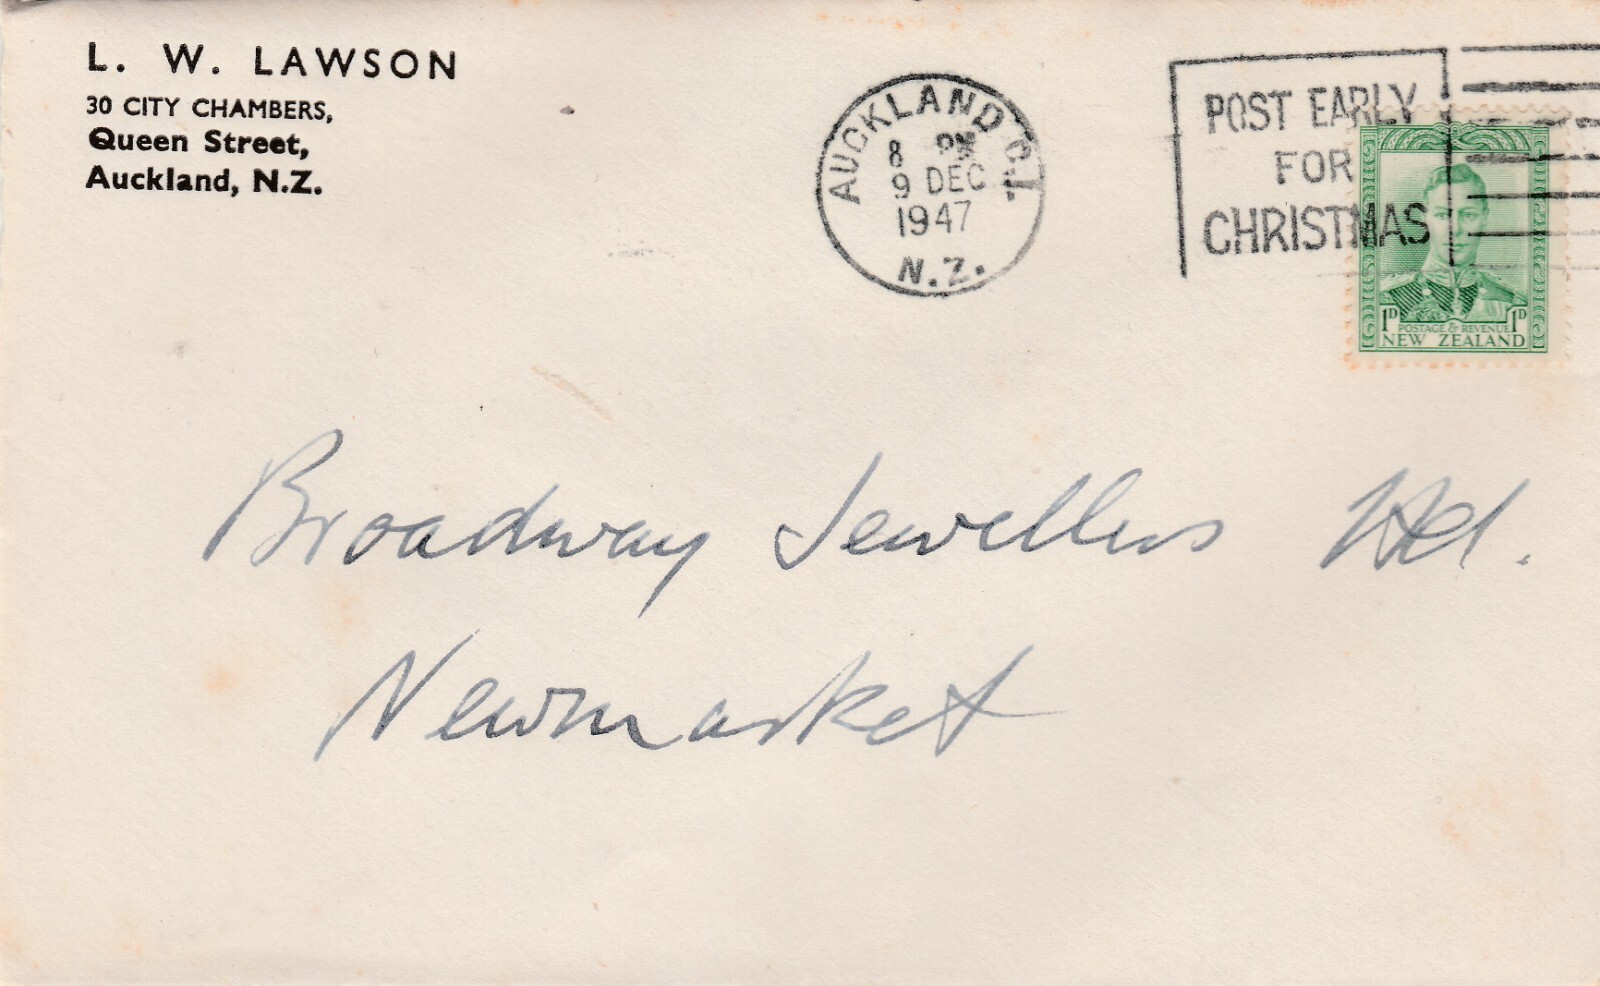 L. W. LAWSON
30 CITY CHAMBERS,
Queen Street,
Auckland, N.Z.
AUCKLAND C.1.
8 PM
9 DEC
1947
N.Z.
POST EARLY
FOR
CHRISTMAS
1D POSTAGE & REVENUE 1D
NEW ZEALAND
Broadway Jewellers Ltd.
Newmarket